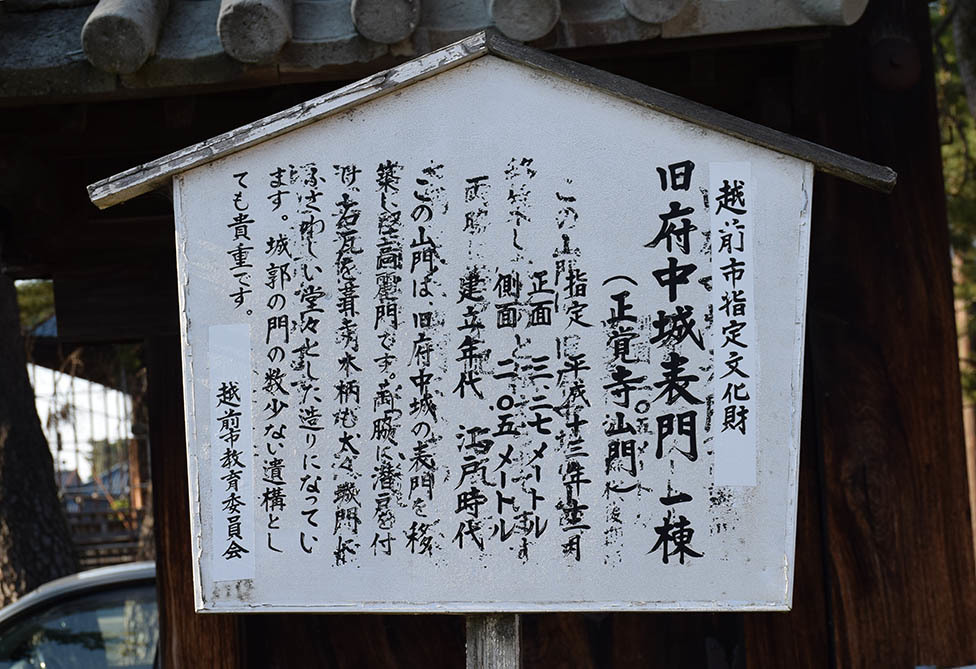 越前市指定文化財
旧府中城表門 一棟
(正覚寺山門)
指定 平成十三年
正面 三.二七メートル
側面 二.〇五メートル
建立年代 江戸時代
この山門は旧府中城の表門を移
築し高麗門です。両脇に潜戸を付
け 瓦を葺き木柄も太く
ふさわしい堂々とした造りになってい
ます。城郭の門の数少ない遺構とし
ても貴重です。
越前市教育委員会